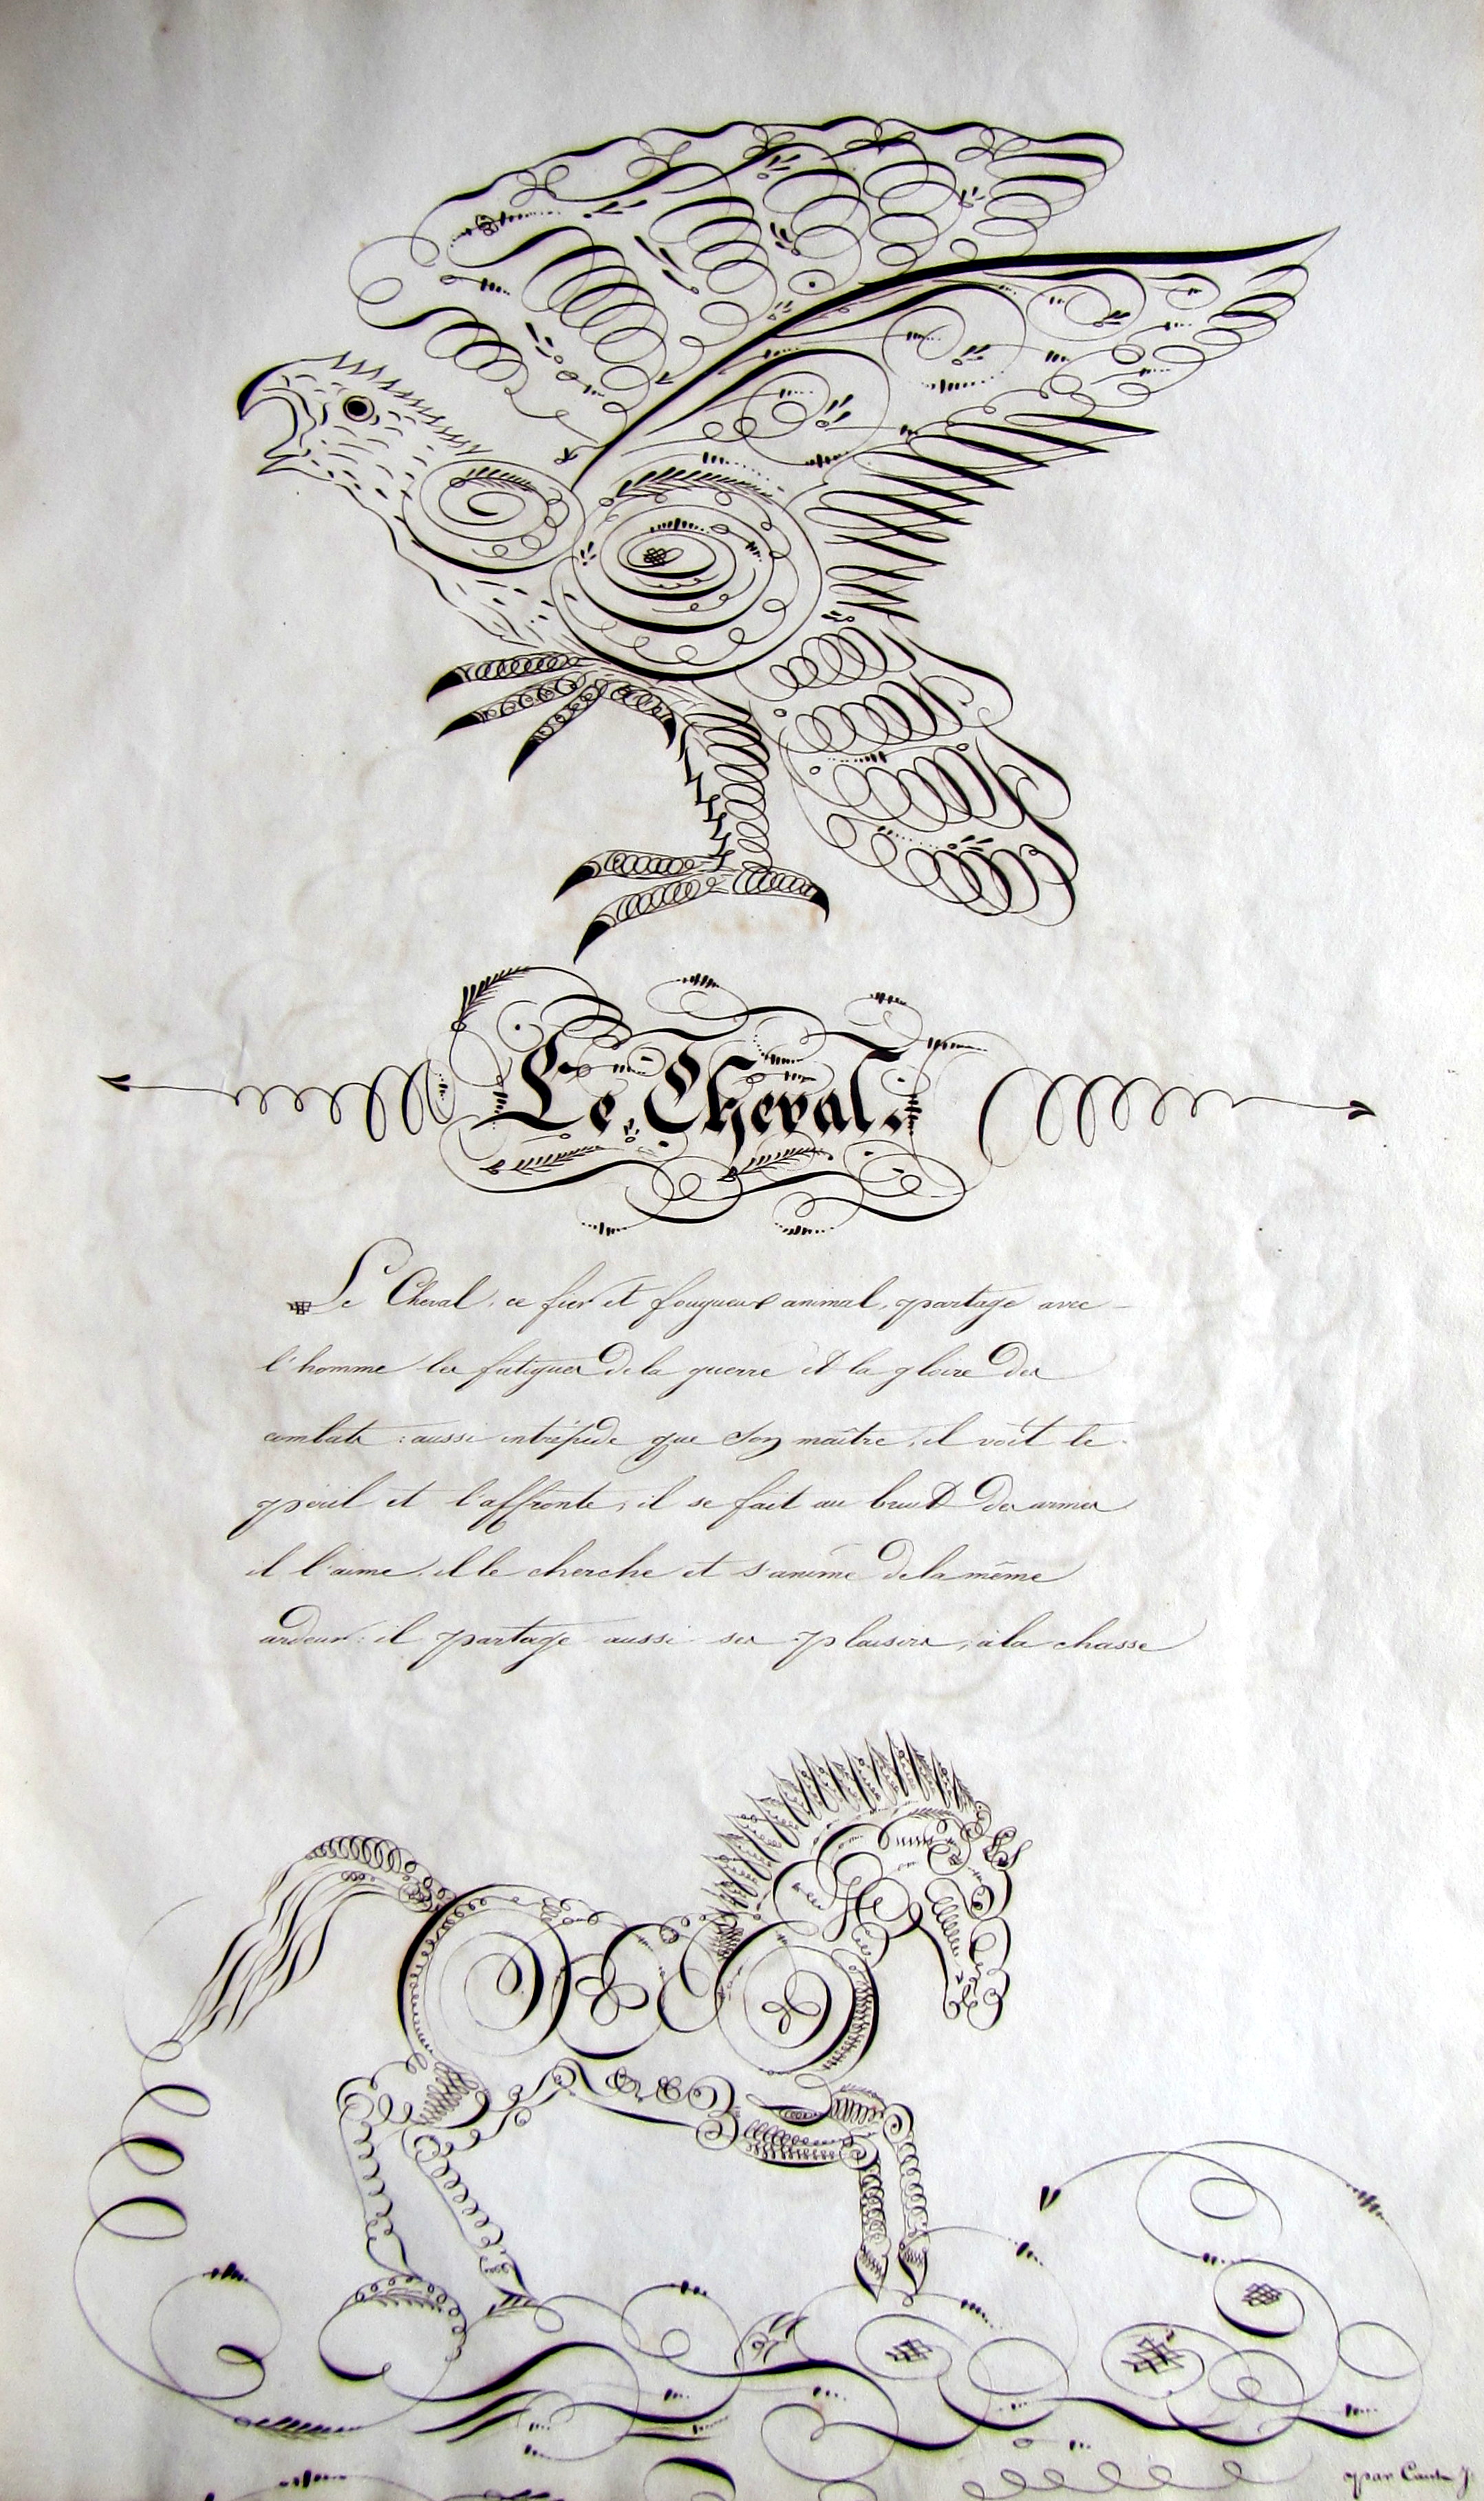 Le Cheval.
Le Cheval, ce fier et fougueux animal, partage avec
l'homme les fatigues de la guerre et la gloire des
combats : aussi intrépide que son maître, il voit le
péril et l'affronte, il se fait au bruit des armes
il l'aime, il le cherche et s'anime de la même
ardeur : il partage aussi ses plaisirs, à la chasse
par